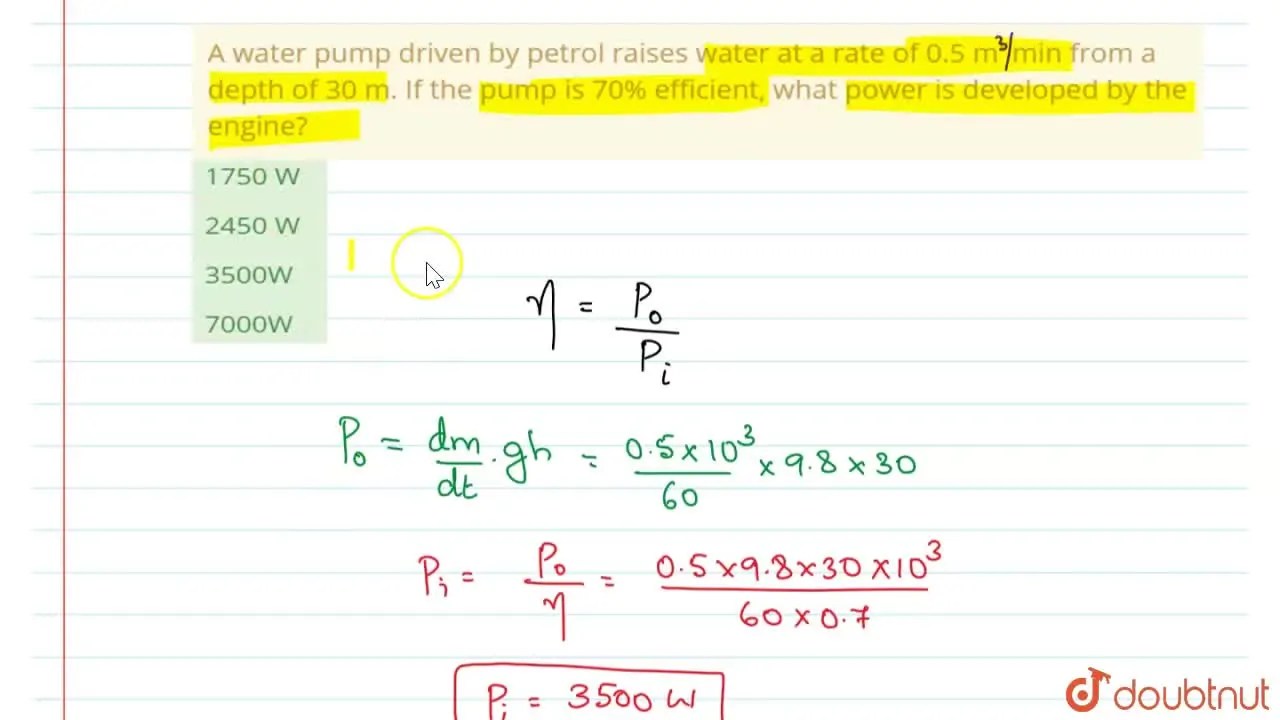 A water pump driven by petrol raises water at a rate of 0.5 m³/min from a
depth of 30 m. If the pump is 70% efficient, what power is developed by the
engine?
1750 W
2450 W
3500W
7000W
η = P₀/Pᵢ
P₀ = dm/dt . gh = 0.5 × 10³/60 × 9.8 × 30
Pᵢ = P₀/η = 0.5 × 9.8 × 30 × 10³/60 × 0.7
Pᵢ = 3500 W
doubtnut